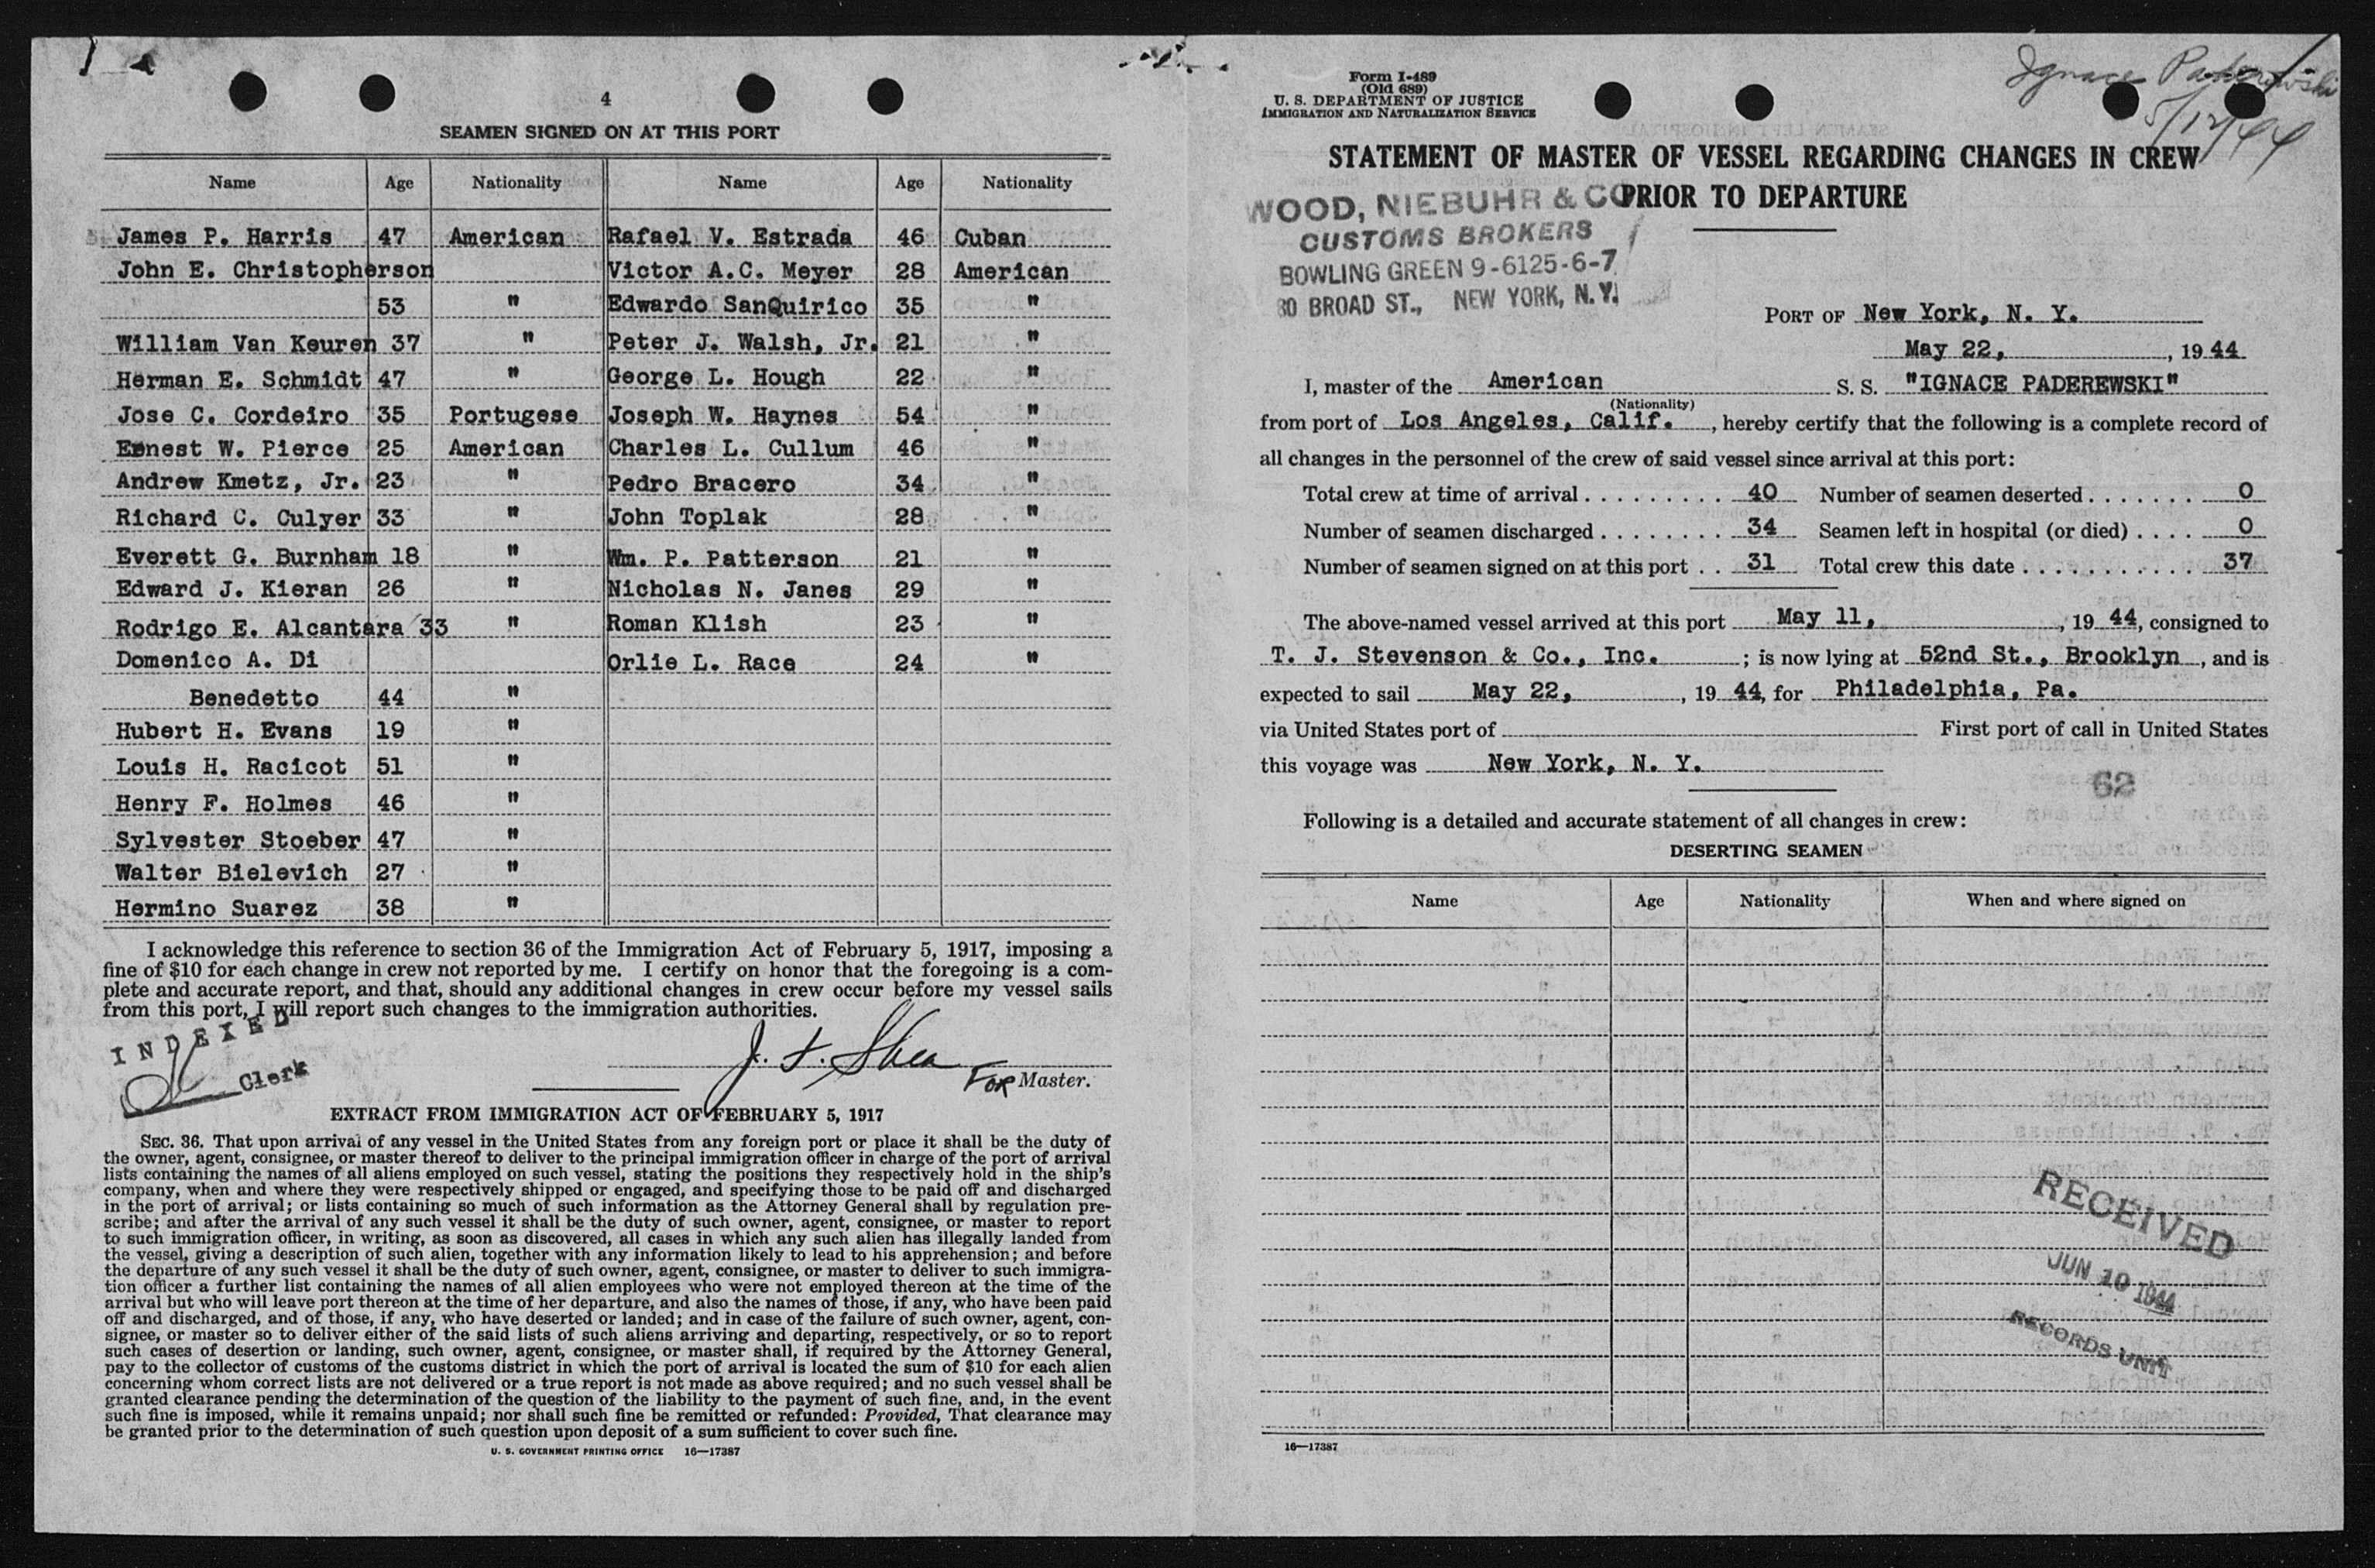 4
SEAMEN SIGNED ON AT THIS PORT
Name Age Nationality Name Age Nationality
James P. Harris 47 American Rafael V. Estrada 46 Cuban
John E. Christopherson Victor A.C. Meyer 28 American
53 " Edwardo SanQuirico 35 "
William Van Keuren 37 " Peter J. Walsh, Jr. 21 "
Herman E. Schmidt 47 " George L. Hough 22 "
Jose C. Cordeiro 35 Portugese Joseph W. Haynes 54 "
Ernest W. Pierce 25 American Charles L. Cullum 46 "
Andrew Kmetz, Jr. 23 " Pedro Bracero 34 "
Richard C. Culyer 33 " John Toplak 28 "
Everett G. Burnham 18 " Wm. P. Patterson 21 "
Edward J. Kieran 26 " Nicholas N. Janes 29 "
Rodrigo E. Alcantara 33 " Roman Klish 23 "
Domenico A. Di Orlie L. Race 24 "
Benedetto 44 "
Hubert H. Evans 19 "
Louis H. Racicot 51 "
Henry F. Holmes 46 "
Sylvester Stoeber 47 "
Walter Bielevich 27 "
Hermino Suarez 38 "
I acknowledge this reference to section 36 of the Immigration Act of February 5, 1917, imposing a
fine of $10 for each change in crew not reported by me. I certify on honor that the foregoing is a com-
plete and accurate report, and that, should any additional changes in crew occur before my vessel sails
from this port, I will report such changes to the immigration authorities.
INDEXED
Clerk
J. F. Shea
FOR Master.
EXTRACT FROM IMMIGRATION ACT OF FEBRUARY 5, 1917
SEC. 36. That upon arrival of any vessel in the United States from any foreign port or place it shall be the duty of
the owner, agent, consignee, or master thereof to deliver to the principal immigration officer in charge of the port of arrival
lists containing the names of all aliens employed on such vessel, stating the positions they respectively hold in the ship's
company, when and where they were respectively shipped or engaged, and specifying those to be paid off and discharged
in the port of arrival; or lists containing so much of such information as the Attorney General shall by regulation pre-
scribe; and after the arrival of any such vessel it shall be the duty of such owner, agent, consignee, or master to report
to such immigration officer, in writing, as soon as discovered, all cases in which any such alien has illegally landed from
the vessel, giving a description of such alien, together with any information likely to lead to his apprehension; and before
the departure of any such vessel it shall be the duty of such owner, agent, consignee, or master to deliver to such immigra-
tion officer a further list containing the names of all alien employees who were not employed thereon at the time of the
arrival but who will leave port thereon at the time of her departure, and also the names of those, if any, who have been paid
off and discharged, and of those, if any, who have deserted or landed; and in case of the failure of such owner, agent, con-
signee, or master so to deliver either of the said lists of such aliens arriving and departing, respectively, or so to report
such cases of desertion or landing, such owner, agent, consignee, or master shall, if required by the Attorney General,
pay to the collector of customs of the customs district in which the port of arrival is located the sum of $10 for each alien
concerning whom correct lists are not delivered or a true report is not made as above required; and no such vessel shall be
granted clearance pending the determination of the question of the liability to the payment of such fine, and, in the event
such fine is imposed, while it remains unpaid; nor shall such fine be remitted or refunded: Provided, That clearance may
be granted prior to the determination of such question upon deposit of a sum sufficient to cover such fine.
U. S. GOVERNMENT PRINTING OFFICE 16—17387
Form I-489
(Old 689)
U. S. DEPARTMENT OF JUSTICE
IMMIGRATION AND NATURALIZATION SERVICE
Ignace Paderewski
5/12/44
STATEMENT OF MASTER OF VESSEL REGARDING CHANGES IN CREW
PRIOR TO DEPARTURE
WOOD, NIEBUHR & CO
CUSTOMS BROKERS
BOWLING GREEN 9-6125-6-7
80 BROAD ST., NEW YORK, N.Y.
PORT OF New York, N. Y.
May 22, , 1944
I, master of the American S. S. "IGNACE PADEREWSKI"
(Nationality)
from port of Los Angeles, Calif. , hereby certify that the following is a complete record of
all changes in the personnel of the crew of said vessel since arrival at this port:
Total crew at time of arrival . . . . . . . . . 40 Number of seamen deserted . . . . . . . 0
Number of seamen discharged . . . . . . . . 34 Seamen left in hospital (or died) . . . . 0
Number of seamen signed on at this port . . 31 Total crew this date . . . . . . . . . . . 37
The above-named vessel arrived at this port May 11, , 19 44, consigned to
T. J. Stevenson & Co., Inc. ; is now lying at 52nd St., Brooklyn , and is
expected to sail May 22, , 19 44, for Philadelphia, Pa.
via United States port of First port of call in United States
this voyage was New York, N. Y.
62
Following is a detailed and accurate statement of all changes in crew:
DESERTING SEAMEN
Name Age Nationality When and where signed on
RECEIVED
JUN 10 1944
RECORDS UNIT
16—17387